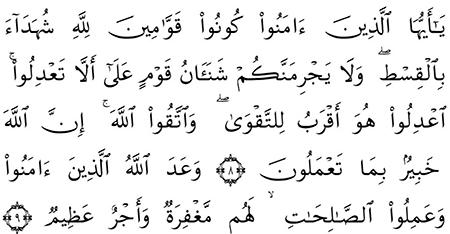 يَٰٓأَيُّهَا ٱلَّذِينَ ءَامَنُوا۟ كُونُوا۟ قَوَّٰمِينَ لِلَّهِ شُهَدَآءَ
بِٱلْقِسْطِ ۖ وَلَا يَجْرِمَنَّكُمْ شَنَـَٔانُ قَوْمٍ عَلَىٰٓ أَلَّا تَعْدِلُوا۟ ۚ
ٱعْدِلُوا۟ هُوَ أَقْرَبُ لِلتَّقْوَىٰ ۖ وَٱتَّقُوا۟ ٱللَّهَ ۚ إِنَّ ٱللَّهَ
خَبِيرٌۢ بِمَا تَعْمَلُونَ ۝٨ وَعَدَ ٱللَّهُ ٱلَّذِينَ ءَامَنُوا۟
وَعَمِلُوا۟ ٱلصَّٰلِحَٰتِ ۙ لَهُم مَّغْفِرَةٌ وَأَجْرٌ عَظِيمٌ ۝٩